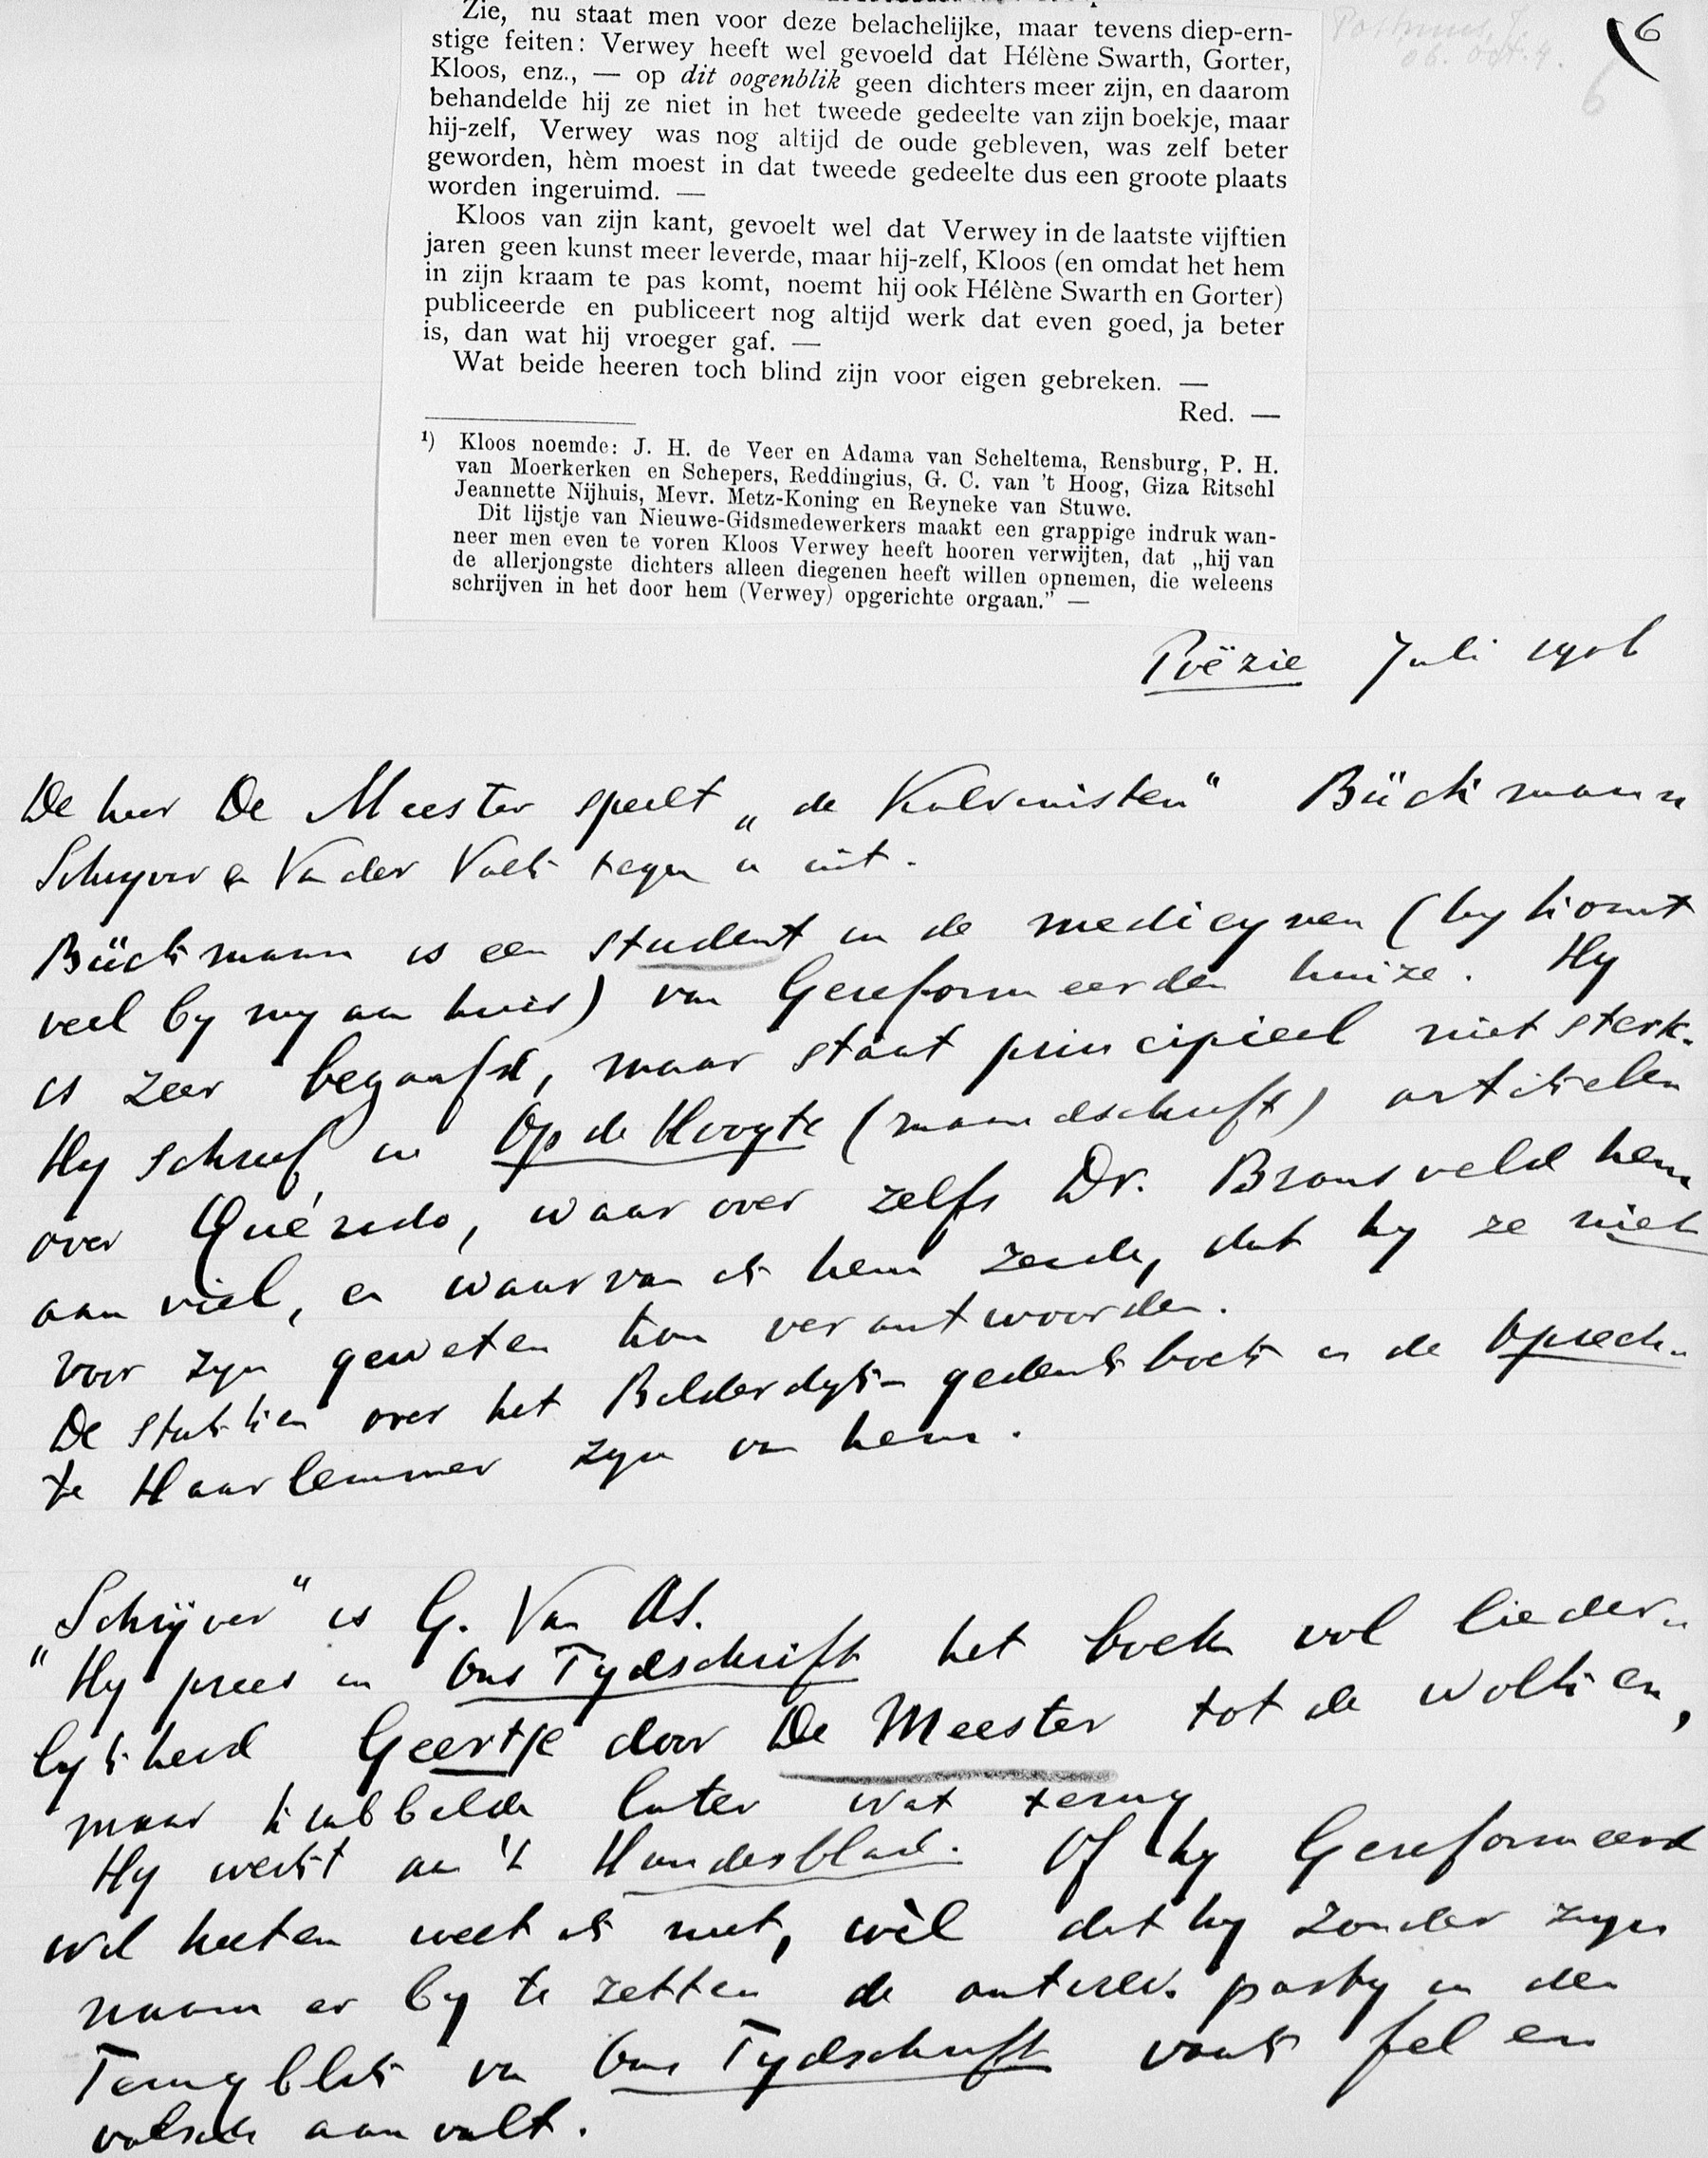 Zie, nu staat men voor deze belachelijke, maar tevens diep-ern-
stige feiten: Verwey heeft wel gevoeld dat Hélène Swarth, Gorter,
Kloos, enz., — op dit oogenblik geen dichters meer zijn, en daarom
behandelde hij ze niet in het tweede gedeelte van zijn boekje, maar
hij-zelf, Verwey was nog altijd de oude gebleven, was zelf beter
geworden, hèm moest in dat tweede gedeelte dus een groote plaats
worden ingeruimd. —
Kloos van zijn kant, gevoelt wel dat Verwey in de laatste vijftien
jaren geen kunst meer leverde, maar hij-zelf, Kloos (en omdat het hem
in zijn kraam te pas komt, noemt hij ook Hélène Swarth en Gorter)
publiceerde en publiceert nog altijd werk dat even goed, ja beter
is, dan wat hij vroeger gaf. —
Wat beide heeren toch blind zijn voor eigen gebreken. —
Red. —
¹) Kloos noemde: J. H. de Veer en Adama van Scheltema, Rensburg, P. H.
van Moerkerken en Schepers, Reddingius, G. C. van 't Hoog, Giza Ritschl
Jeannette Nijhuis, Mevr. Metz-Koning en Reyneke van Stuwe.
Dit lijstje van Nieuwe-Gidsmedewerkers maakt een grappige indruk wan-
neer men even te voren Kloos Verwey heeft hooren verwijten, dat „hij van
de allerjongste dichters alleen diegenen heeft willen opnemen, die weleens
schrijven in het door hem (Verwey) opgerichte orgaan.” —
Postmus, J.
06. Oct. 4.
6
6
Poëzie Juli 1906
De heer De Meester speelt „de Kalvinisten" Bückmann
Schryver en Van der Valk tegen u uit.
Bückmann is een student in de medicynen (hy komt
veel by my aan huis) van Gereformeerden huize. Hy
is zeer begaafd, maar staat principieel niet sterk.
Hy schreef in Op de Hoogte (maandschrift) artikelen
over Quérido, waarover zelfs Dr. Bronsveld hem
aanviel, en waarvan ik hem zeide, dat hy ze niet
voor zyn geweten kon verantwoorden.
De stukken over het Bilderdyk-gedenkboek in de Oprech-
te Haarlemmer zyn van hem.
"Schrijver" is G. Van As.
Hy prees in Ons Tydschrift het boek vol lieder-
lykheid Geertje door De Meester tot de wolken,
maar krabbelde later wat terug
Hy werkt aan 't Handelsblad. Of hy Gereformeerd
wil heeten weet ik niet, wèl dat hy zonder zyn
naam er by te zetten de antirev. party in den
Terugblik van Ons Tydschrift vaak fel en
valsch aanvalt.